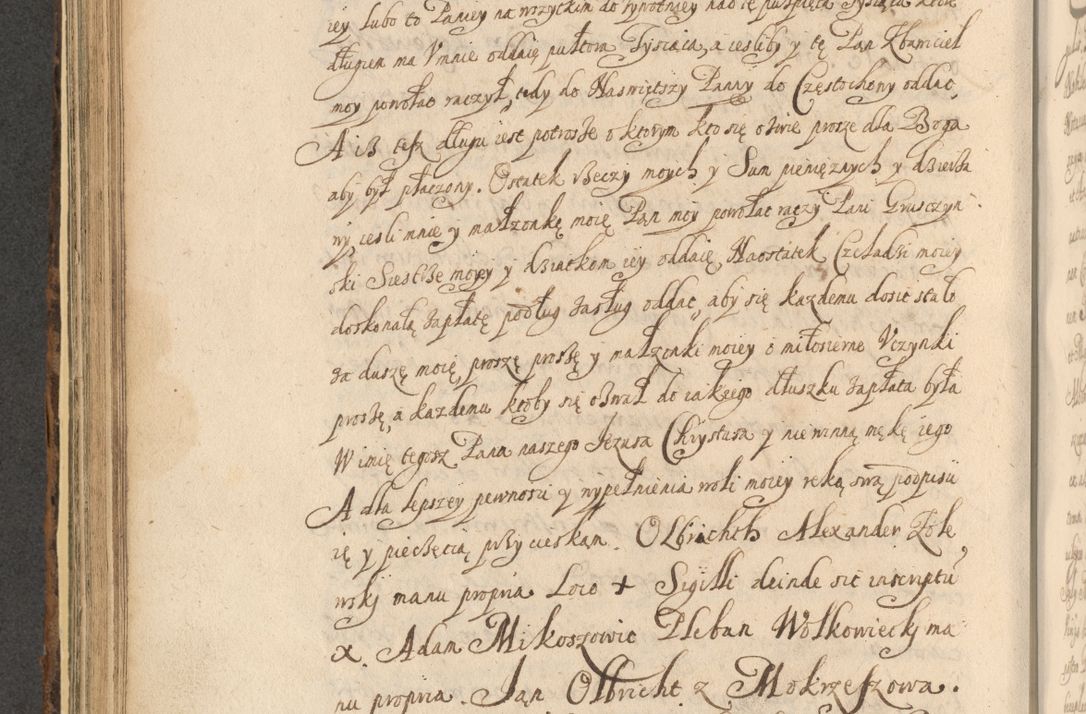 iey lubo to Paniey na wszytkim do żywotniey nad te pułpięta Tysiąca ktor
długien ma Vmnie oddaię pułtora Tysiąca, a iesliby y tę Pan Zbawiciel
moy powołac raczył, tedy do Naswiętszy Panny do Częstochowy oddac
A iż tesz długu iest potrosze o ktorym kto się ozwie proszę dla Boga
aby był płaczony. Ostatek rzeczy moych y Sum pieniężnych y dzierża
wy, iesli mnie y małżonkę moię Pan moy powołac raczy Pani Grusczyn
ski Siestrze moiey y dziatkom iey oddaię, Naostatek Czeladzi moiey
doskonałą zapłatę podług zasług oddac, aby się każdemu dosic stało
za duszę moię proszę proszę y małżonki moiey o miłosierne Vczynki
proszę, a każdemu ktoby się ozwał do iakiego dłuszku zapłata była
W imię tegosz Pana naszego Jezusa Chrystusa y niewinną mękę iego
A dla lepszey pewnosci y wypełnienia woli moiey ręką swą podpisu
ię y pieczęcią przycieskam. Olbrichth Alexander Zole
wskj manu propria Loco + Sigilli deinde sic inscriptũ
x. Adam Mikoszowic Pleban Wołkowieckj ma
nu propria. Jan Olbricht z Mokrzeszowa.